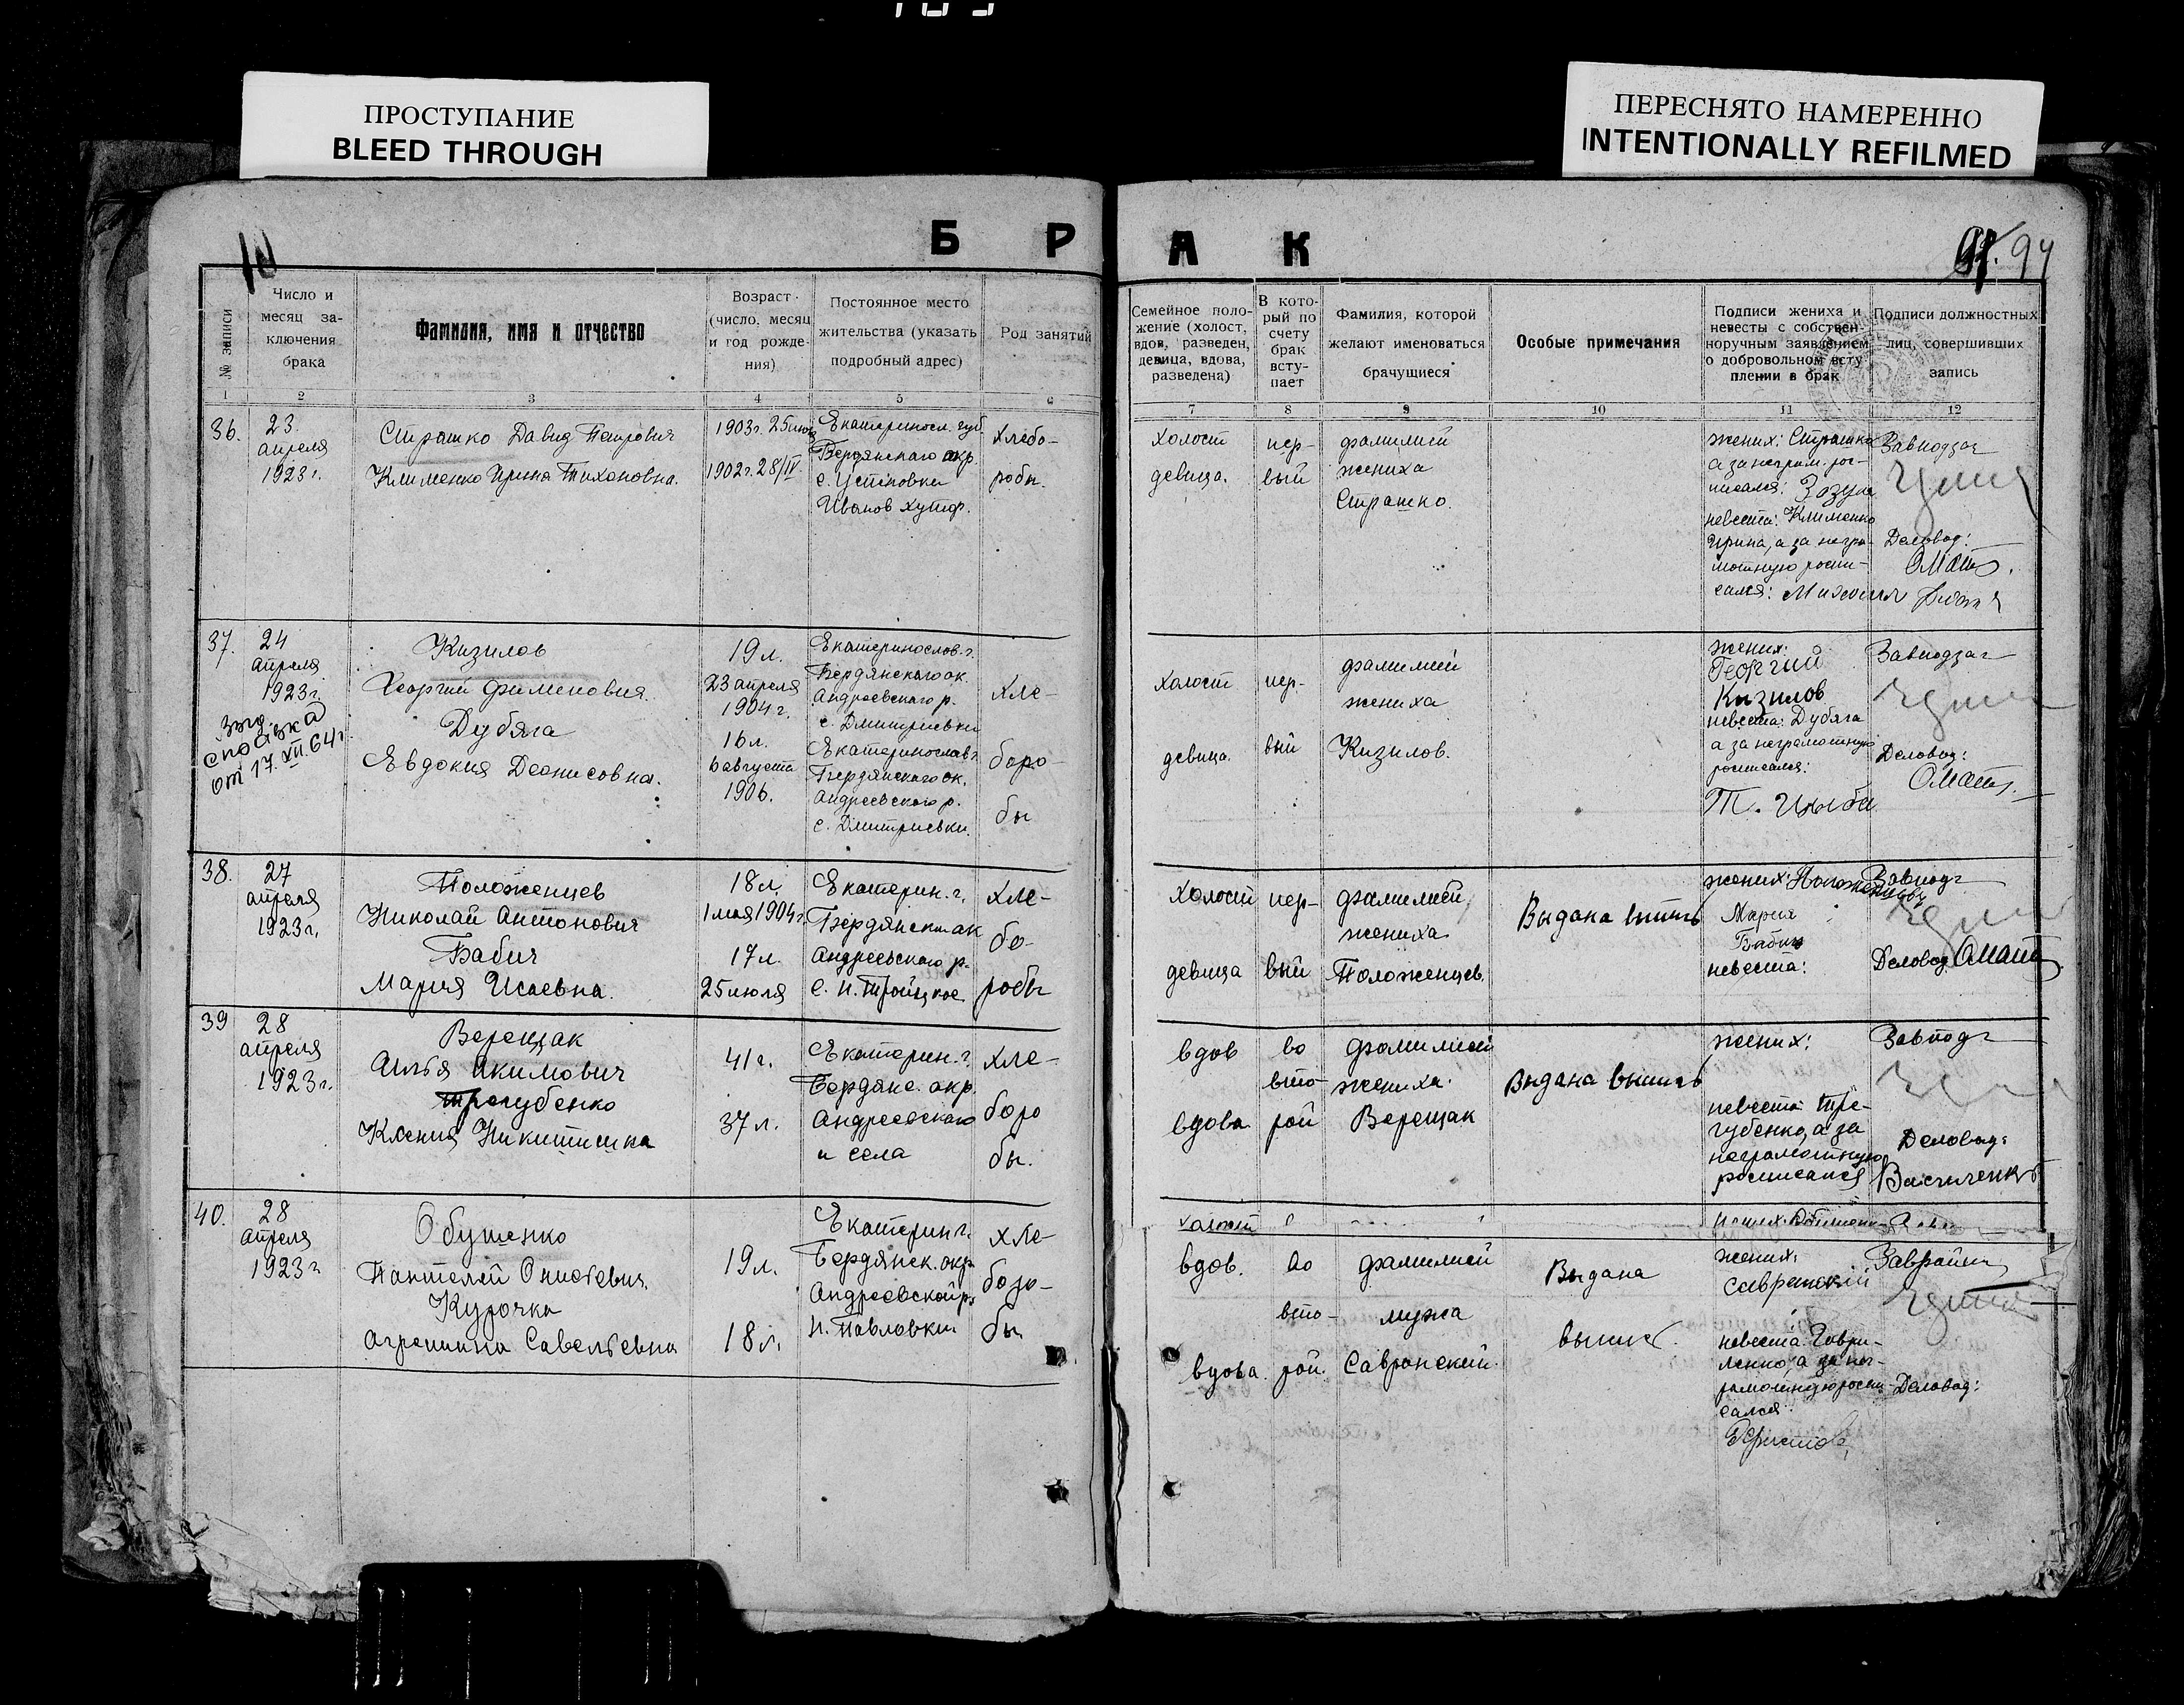 ПРОСТУПАНИЕ
BLEED THROUGH
ПЕРЕСНЯТО НАМЕРЕННО
INTENTIONALLY REFILMED
Б Р А К
10
94
№ записи
Число и
месяц за-
ключения
брака
Фамилия, имя и отчество
Возраст
(число, месяц
и год рожде-
ния)
Постоянное место
жительства (указать
подробный адрес)
Род занятий
Семейное поло-
жение (холост,
вдов, разведен,
девица, вдова,
разведена)
В кото-
рый по
счету
брак
всту-
пает
Фамилия, которой
желают именоваться
брачущиеся
Особые примечания
Подписи жениха и
невесты с собствен-
норучным заявлением
о добровольном всту
плении в брак
Подписи должностных
лиц, совершивших
запись
1 2 3 4 5 6 7 8 9 10 11 12
36.
23.
апреля
1923 г.
Страшко Давид Петрович
Клименко Ирина Тихоновна.
1903 г. 25
1902 г. 28/IV.
Екатериносл. губ
Бердянского окр.
с.
Иванов хутор.
хлебо-
робы.
холост
девица.
пер-
вый
фамилией
жениха
Страшко.
жених: Страшко
а за неграм. рос-
писался: Зозуля
невеста: Клименко
Ирина, а за негра-
мотную роспи-
сался: Михаил
Завподзаг
Деловод:
37.
24
апреля
1923 г.
от 17.XII.64 г.
Кизилов
Георгий Филипович.
Дубяга
Евдокия Деонисовна.
19 л.
23 апреля
1904 г.
16 л.
6 августа
1906.
Екатеринослов. г.
Бердянского ок.
Андреевского р.
с. Дмитриевки
Екатеринослав г.
Бердянского ок.
Андреевского р.
с. Дмитриевки.
хле-
боро-
бы
холост
девица
пер-
вый
фамилией
жениха
Кизилов.
жених:
Георгий
Кизилов
невеста: Дубяга
а за неграмотную
росписался:
Т. Цыба
Завподзаг
Деловод:
38.
27
апреля
1923 г.
Положенцев
Николай Антонович
Бабич
Мария Исаевна.
18 л.
1 мая 1904 г.
17 л.
25 июля
Екатерин. г.
Бердянск ок
Андреевского р.
с. Н. Тройцкое
хле-
бо-
робы
холост
девица
пер-
вый
фамилией
жениха
Положенцев.
Выдана выпись
жених: Положенцев
Мария
Бабич
невеста:
Завподг
Деловод
39
28
апреля
1923 г.
Верещак
Илья Акимович
Трегубенко
Ксения Никитишна
41 г.
37 л.
Екатерин. г.
Бердянс. окр.
Андреевского
и села
хле-
боро
бы.
вдов
вдова
во
вто-
рой
фамилией
жениха.
Верещак
Выдана выпись
жених:
невеста: Тре-
губенко, а за
неграмотную
росписался
Завподг
Деловод:
Васильченко
40.
28
апреля
1923 г
Обушенко
Пантелей Онисеевич.
Курочка
Агрепина Савельевна
19 л.
18 л.
Екатерин г.
Бердянск. окр.
Андреевской р.
Н. Павловки
хле-
боро-
бы
холост
вдов.
вдова.
во
вто-
рой.
фамилией
мужа
Савранский.
Выдана
выпис.
жених:
Савранский
невеста: Гаври-
ленко, а за нег-
рамотную роспи-
сался:
Деловод: